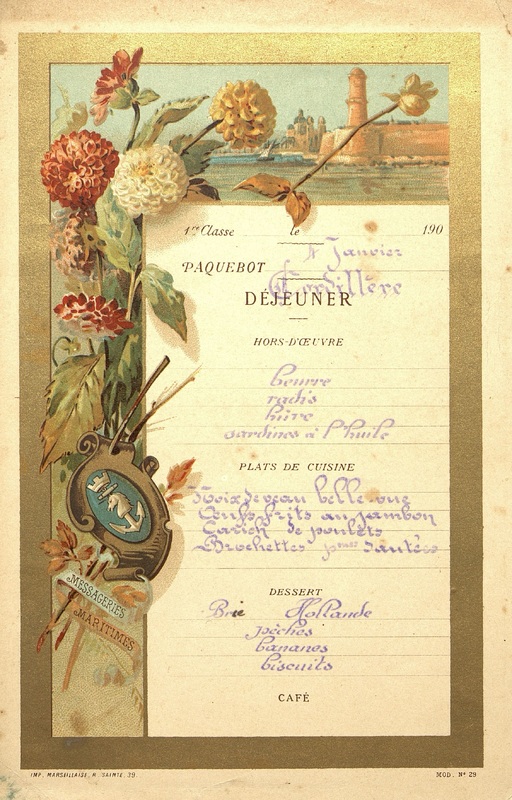 1re Classe le 190
4 Janvier
PAQUEBOT Cordillère
DÉJEUNER
HORS-D'ŒUVRE
beurre
radis
hure
sardines à l'huile
PLATS DE CUISINE
Noix de veau belle-vue
Œufs frits au jambon
Carick de poulets
Brochettes pmes sautées
DESSERT
Brie Hollande
pêches
bananes
biscuits
CAFÉ
MESSAGERIES
MARITIMES
IMP. MARSEILLAISE, R. SAINTE, 39.
MOD. No 29